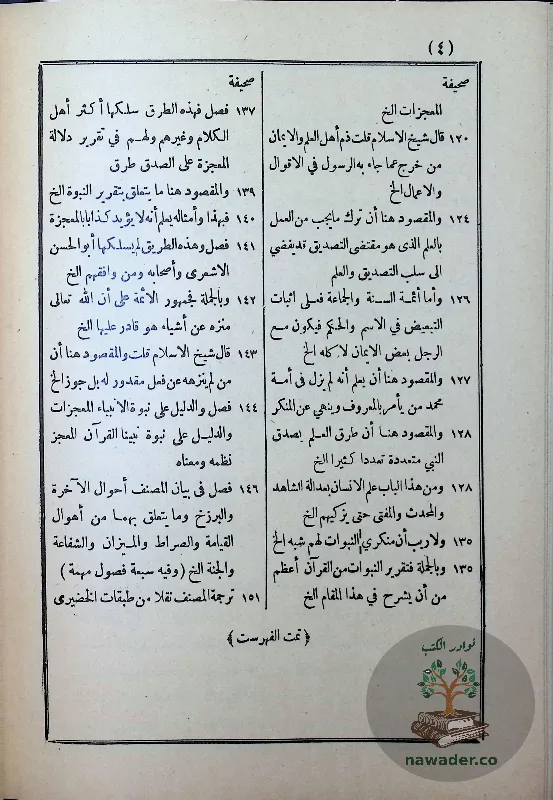 (٤)
صحيفة
المعجزات الخ
١٢٠ قال شيخ الاسلام قلت ذم أهل العلم والايمان
من خرج عما جاء به الرسول في الاقوال
والاعمال الخ
١٢٤ والمقصود هنا أن ترك مايجب من العمل
بالعلم الذى هو مقتضى التصديق قد يفضي
الى سلب التصديق والعلم
١٢٦ وأما أئمة السنة والجماعة فعلى اثبات
التبعيض في الاسم والحكم فيكون مع
الرجل بعض الايمان لا كله الخ
١٢٧ والمقصود هنا أن يعلم أنه لم يزل في أمة
محمد من يأمر بالمعروف وينهي عن المنكر
١٢٨ والمقصود هنا أن طرق العلم بصدق
النبي متعددة تعددا كثيرا الخ
١٢٨ ومن هذا الباب علم الانسان بعدالة الشاهد
والمحدث والمفتى حتى يزكيهم الخ
١٣٥ ولاريب أن منكري النبوات لهم شبه الخ
١٣٥ وبالجملة فتقرير النبوات من القرآن أعظم
من أن يشرح في هذا المقام الخ
صحيفة
١٣٧ فصل فهذه الطرق سلكها أكثر أهل
الكلام وغيرهم ولهم في تقرير دلالة
المعجزة على الصدق طرق
١٣٩ والمقصود هنا ما يتعلق بتقرير النبوة الخ
١٤٠ فبهذا وأمثاله يعلم أنه لا يؤيد كذابا بالمعجزة
١٤١ فصل وهذه الطريق لم يسلكها أبو الحسن
الاشعرى وأصحابه ومن وافقهم الخ
١٤٢ وبالجملة فجمهور الأئمة على أن الله تعالى
منزه عن أشياء هو قادر عليها الخ
١٤٣ قال شيخ الاسلام قلت والمقصود هنا أن
من لم ينزهه عن فعل مقدور له بل جوز الخ
١٤٤ فصل والدليل على نبوة الانبياء المعجزات
والدليل على نبوة نبينا القرآن المعجز
نظمه ومعناه
١٤٦ فصل فى بيان المصنف أحوال الآخرة
والبرزخ وما يتعلق بهما من أهوال
القيامة والصراط والميزان والشفاعة
والجنة الخ (وفيه سبعة فصول مهمة)
١٥١ ترجمة المصنف نقلا من طبقات الخضيرى
﴿تمت الفهرست﴾
نوادر الكتب
nawader.co